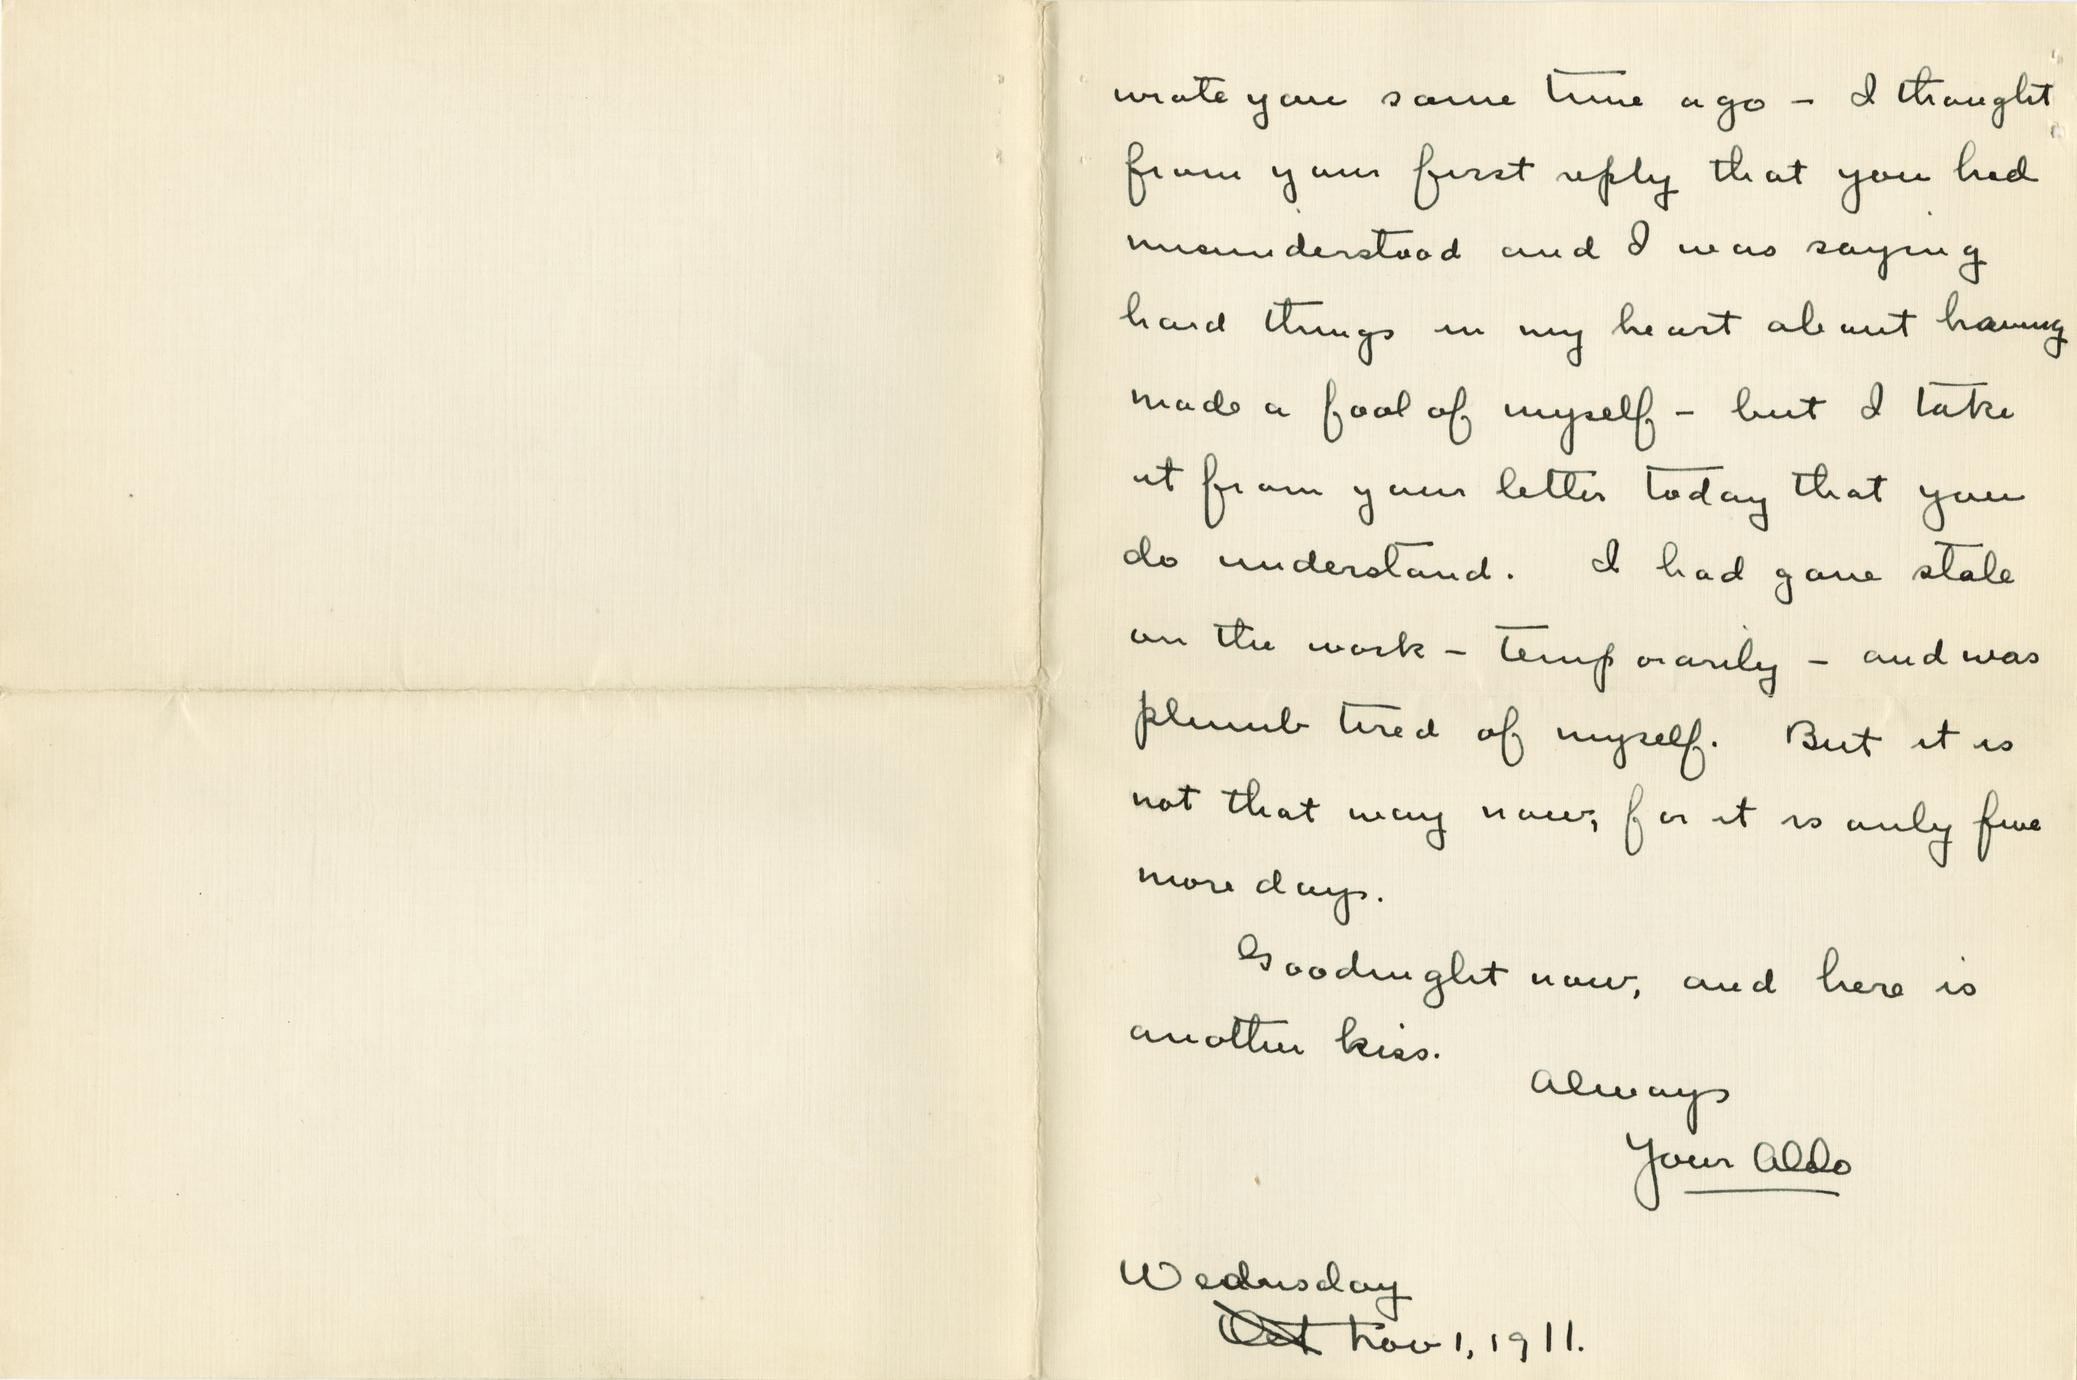 wrote you some time ago – I thought
from your first reply that you had
misunderstood and I was saying
hard things in my heart about having
made a fool of myself – but I take
it from your letter today that you
do understand. I had gone stale
on the work – temporarily – and was
plumb tired of myself. But it is
not that way now, for it is only five
more days.
Goodnight now, and here is
another kiss.
Always
Your Aldo
Wednesday
Oct Nov 1, 1911.